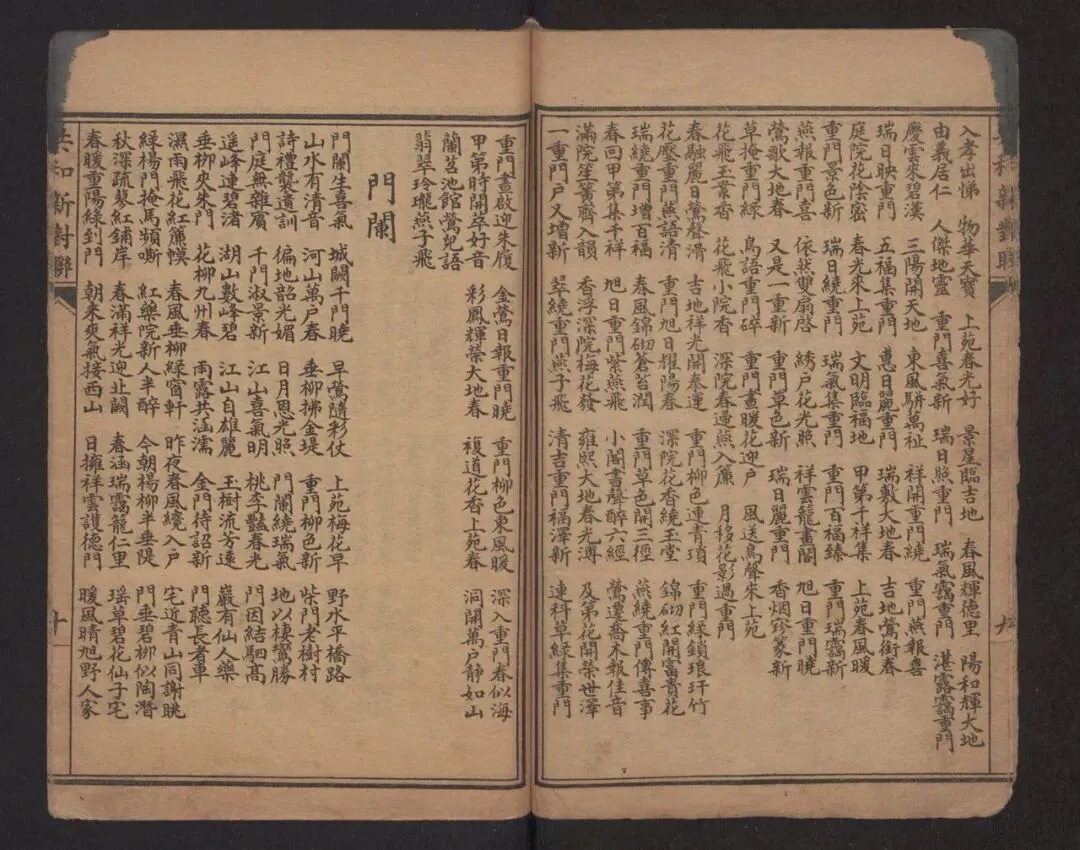 入孝出悌　物華天寶　上苑春光好　景星臨吉地　春風輝德里　陽和輝大地
由義居仁　人傑地靈　重門喜氣新　瑞日照重門　瑞氣靄重門　湛露靄重門
慶雲來碧漢　三陽開天地　東風駢萬祉　祥開重門繞　重門燕報喜
瑞日映重門　五福集重門　蕙日麗重門　瑞敷大地春　吉地鶯銜春
庭院花陰密　春光來上苑　文明臨福地　甲第千祥集　上苑春風暖
重門景色新　瑞日繞重門　瑞氣集重門　重門百福臻　重門瑞靄新
燕報重門喜　依然雙扇啓　綉戶花光照　祥雲籠畫閣　旭日重門曉
鶯歌大地春　又是一重新　重門草色新　瑞日麗重門　香烟寶篆新
草掩重門綠　鳥語重門碎　重門晝暖花迎戶　風送鳥聲來上苑
花飛玉案香　花飛小院香　深院春過燕入簾　月移花影過重門
春融麗日鶯聲滑　吉地祥光開泰運　重門柳色連青瑣　重門綠鎖琅玕竹
花壓重門燕語清　重門旭日耀陽春　深院花香繞玉堂　錦砌紅開富貴花
瑞繞重門增百福　春風錦砌蒼苔潤　重門草色開三徑　燕繞重門傳喜事
春回甲第集千祥　旭日重門紫燕飛　小閣書聲醉六經　鶯遷喬木報佳音
滿院笙簧齊入韻　香浮深院梅花發　雍熙大地春光溥　及第花開榮世澤
一重門戶又增新　翠繞重門燕子飛　清吉重門福澤新　連科草綠集重門
重門晝啟迎朱履　金鶯日報重門曉　重門柳色東風暖　深入重門春似海
甲第時開萃好音　彩鳳輝榮大地春　複道花香上苑春　洞開萬戶靜如山
蘭苕池館鶯兒語
翡翠玲瓏燕子飛
門闌
門闌生喜氣　城闕千門曉　早鶯隨彩仗　上苑梅花早　野水平橋路
山水有清音　河山萬戶春　垂柳拂金堤　重門柳色新　柴門老樹村
詩禮襲遺訓　徧地韶光媚　日月恩光照　門闌繞瑞氣　地以棲鸞勝
門庭無雜賓　千門淑景新　江山喜氣明　桃李豔春光　門因結駟高
遥峰連碧渚　湖山數峰碧　江山自雄麗　玉樹流芳遠　巖有仙人樂
垂柳夾朱門　花柳九州春　雨露共涵濡　金門待詔新　門聽長者車
濕雨飛花紅簾幙　春風垂柳綠窗軒　昨夜春風纔入戶　宅近青山同謝眺
綠楊門掩馬頻嘶　紅藥院新人半醉　今朝楊柳半垂堤　門垂碧柳似陶潛
秋深疏蓼紅鋪岸　春滿祥光迎北闕　春涵瑞靄籠仁里　瑶草碧花仙子宅
春暖重陽綠到門　朝來爽氣接西山　日擁祥雲護德門　暖風晴旭野人家
新對聯
十